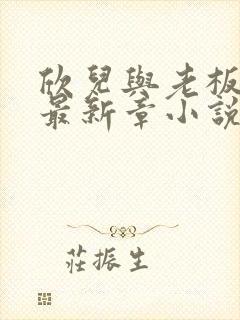 欣兒與老板
最新章小說
莊振生